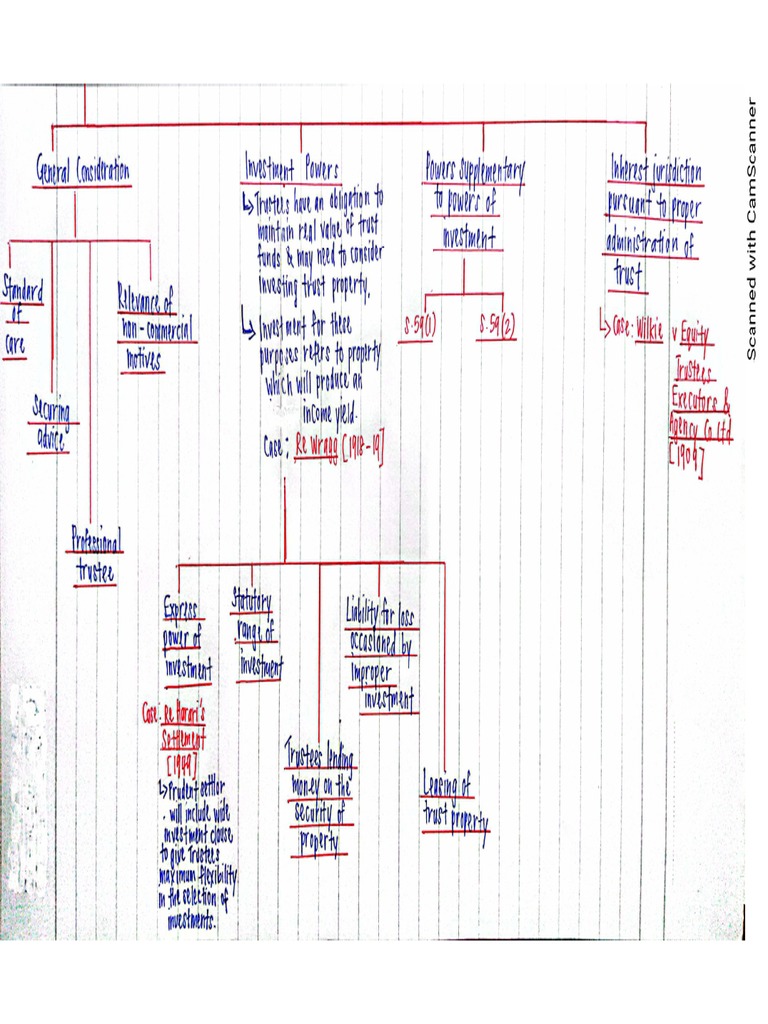 General Consideration
Standard
of
care
Securing
advice
Professional
trustee
Relevance of
non-commercial
motives
Investment Powers
↳ Trustees have an obligation to
maintain real value of trust
funds & may need to consider
investing trust property.
↳ Investment for these
purposes refers to property
which will produce an
income yield.
Case: Re Wragg [1918-19]
Express
power of
investment
Case: Re Harari's
Settlement
[1949]
↳ Prudent settlor
will include wide
investment clause
to give Trustees
maximum flexibility
in the selection of
investments.
Statutory
range of
investment
Trustees lending
money on the
security of
property
Liability for loss
occasioned by
improper
investment
Leasing of
trust property
Powers supplementary
to powers of
investment
S.59(1)
S.59(2)
Inherest jurisdiction
pursuant to proper
administration of
trust
↳ Case: Wilkie v Equity
Trustees
Executors &
Agency Co Ltd
[1909]
Scanned with CamScanner